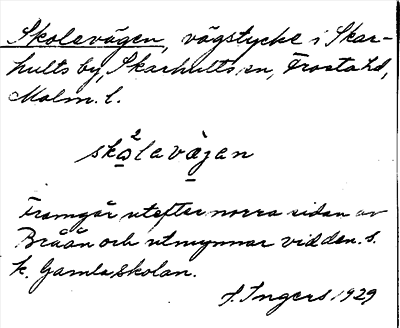 Skolevägen, vägstycke i Skar-
hults by, Skarhults sn, Frosta hd,
Malm. l.
skå²lavägan
Framgår utefter norra sidan av
Bråån och utmynnar vid den s.
k. Gamla skolan.
I. Ingers 1929